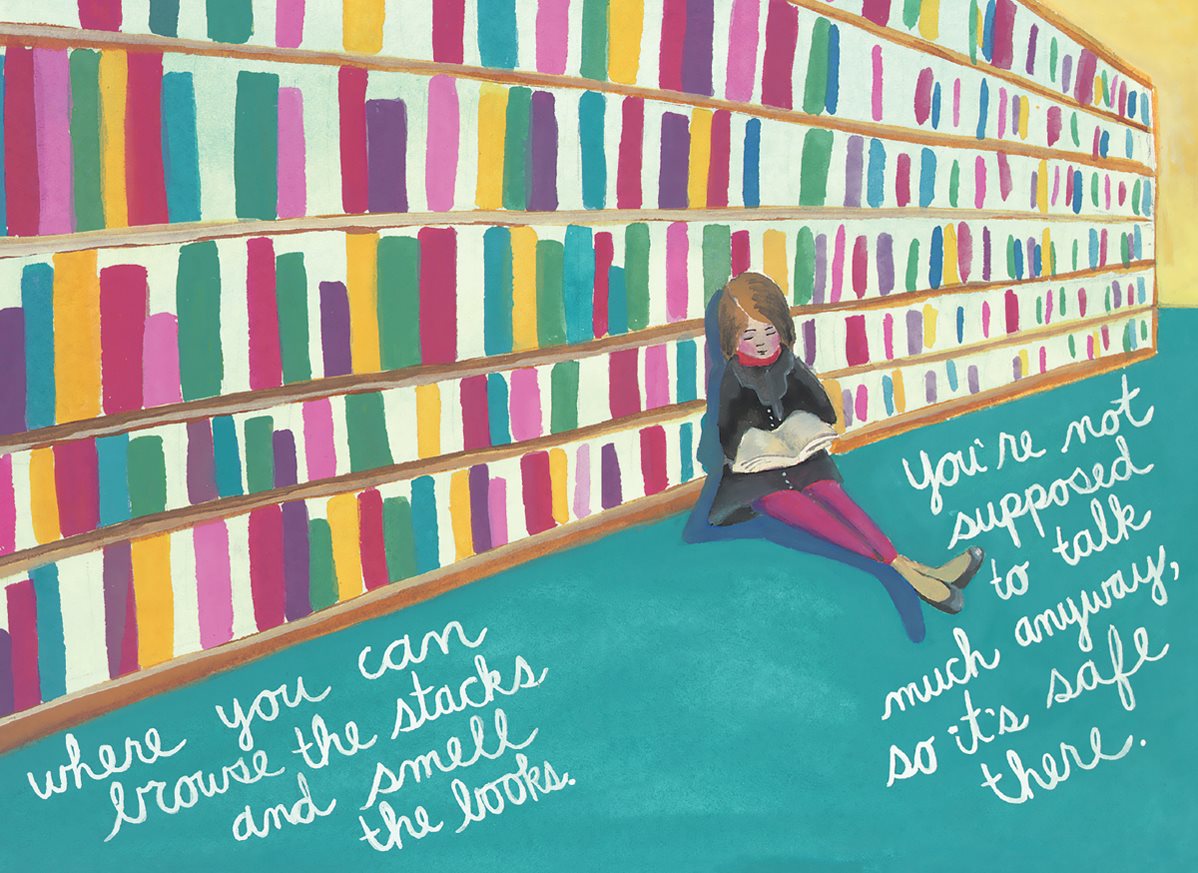 where you can
browse the stacks
and smell
the books.
You're not
supposed
to talk
much anyway,
so it's safe
there.